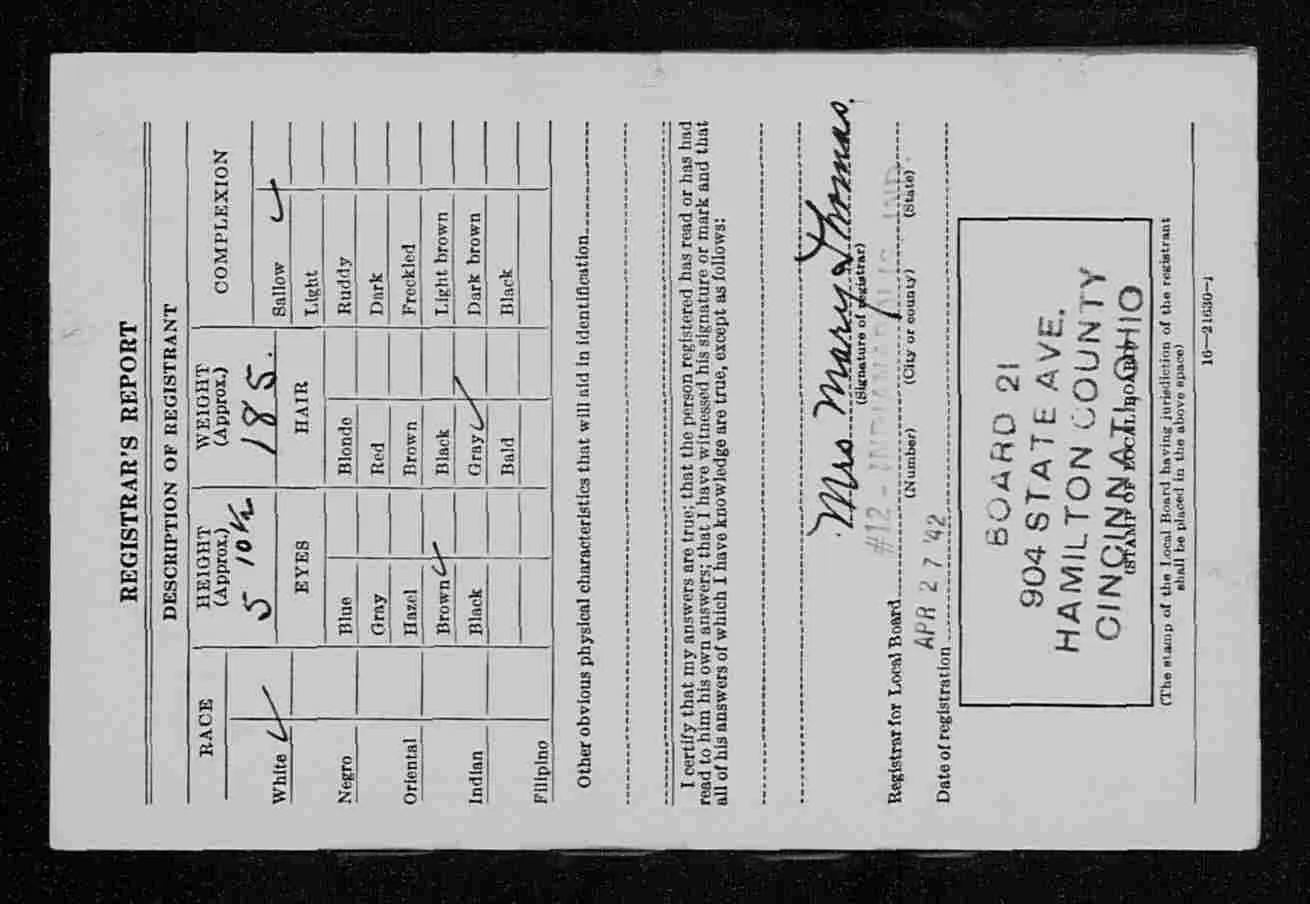 REGISTRAR'S REPORT
DESCRIPTION OF REGISTRANT
RACE
HEIGHT (Approx.)
WEIGHT (Approx.)
COMPLEXION
5 10½
185.
White ✓
EYES
HAIR
Sallow ✓
Light
Negro
Blue
Blonde
Ruddy
Gray
Red
Dark
Oriental
Hazel
Brown
Freckled
Brown ✓
Black
Light brown
Indian
Black
Gray ✓
Dark brown
Bald
Black
Filipino
Other obvious physical characteristics that will aid in identification
I certify that my answers are true; that the person registered has read or has had
read to him his own answers; that I have witnessed his signature or mark and that
all of his answers of which I have knowledge are true, except as follows:
Mrs Mary Thomas.
(Signature of registrar)
#12 - INDIANAPOLIS, IND.
Registrar for Local Board
(Number) (City or county) (State)
APR 27 '42
Date of registration
BOARD 21
904 STATE AVE.
HAMILTON COUNTY
CINCINNATI, OHIO
(STAMP OF LOCAL BOARD)
(The stamp of the Local Board having jurisdiction of the registrant
shall be placed in the above space)
16—21630-1